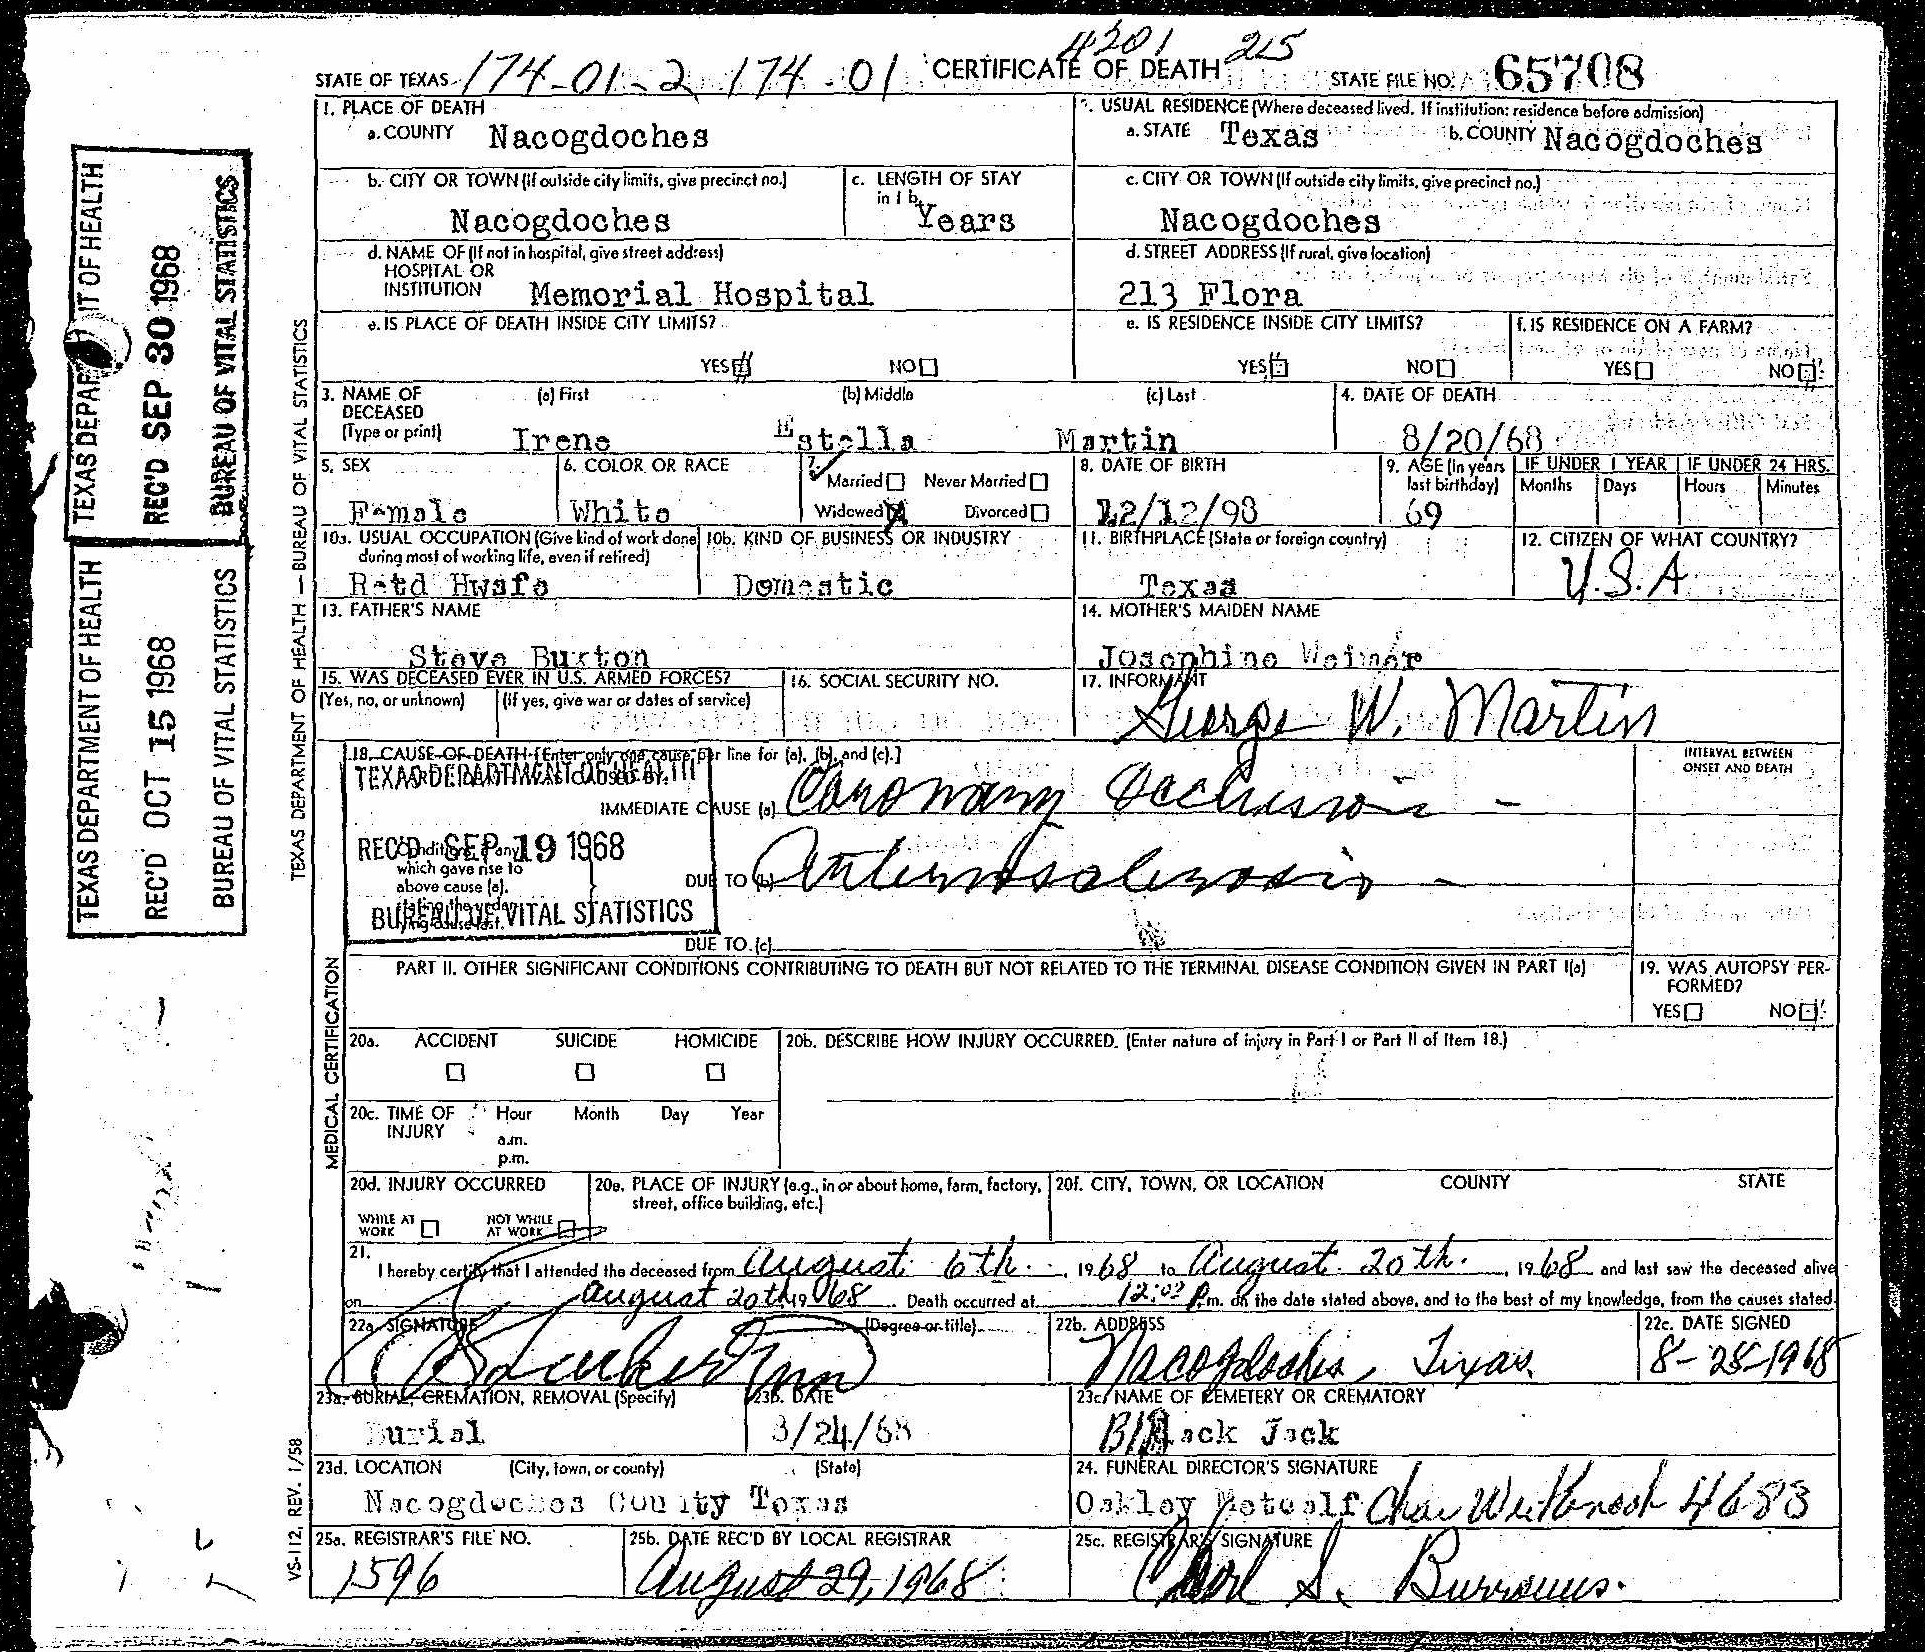 4201 215
STATE OF TEXAS 174-01-2 174-01 CERTIFICATE OF DEATH STATE FILE NO. 65708
1. PLACE OF DEATH
a. COUNTY Nacogdoches
2. USUAL RESIDENCE (Where deceased lived. If institution: residence before admission)
a. STATE Texas b. COUNTY Nacogdoches
b. CITY OR TOWN (If outside city limits, give precinct no.)
Nacogdoches
c. LENGTH OF STAY
in 1 b.
Years
c. CITY OR TOWN (If outside city limits, give precinct no.)
Nacogdoches
d. NAME OF (If not in hospital, give street address)
HOSPITAL OR
INSTITUTION Memorial Hospital
d. STREET ADDRESS (If rural, give location)
213 Flora
e. IS PLACE OF DEATH INSIDE CITY LIMITS?
YES NO
e. IS RESIDENCE INSIDE CITY LIMITS?
YES NO
f. IS RESIDENCE ON A FARM?
YES NO
3. NAME OF
DECEASED
(Type or print)
(a) First (b) Middle (c) Last
Irene Estella Martin
4. DATE OF DEATH
8/20/68
5. SEX
Female
6. COLOR OR RACE
White
7.
Married Never Married
Widowed Divorced
8. DATE OF BIRTH
12/12/98
9. AGE (In years
last birthday)
69
IF UNDER 1 YEAR IF UNDER 24 HRS.
Months Days Hours Minutes
10a. USUAL OCCUPATION (Give kind of work done
during most of working life, even if retired)
Retd Hwsfe
10b. KIND OF BUSINESS OR INDUSTRY
Domestic
11. BIRTHPLACE (State or foreign country)
Texas
12. CITIZEN OF WHAT COUNTRY?
U.S.A
13. FATHER'S NAME
Steve Burton
14. MOTHER'S MAIDEN NAME
Josephine Weimer
15. WAS DECEASED EVER IN U.S. ARMED FORCES?
(Yes, no, or unknown) (If yes, give war or dates of service)
16. SOCIAL SECURITY NO.
17. INFORMANT
George W. Martin
18. CAUSE OF DEATH [Enter only one cause per line for (a), (b), and (c).]
INTERVAL BETWEEN
ONSET AND DEATH
IMMEDIATE CAUSE (a) Coronary Occlusion -
Conditions, if any
which gave rise to
above cause (a),
stating the under-
lying cause last.
DUE TO (b) Arteriosclerosis -
DUE TO (c)
TEXAS DEPARTMENT OF HEALTH
REC'D SEP 19 1968
BUREAU OF VITAL STATISTICS
PART II. OTHER SIGNIFICANT CONDITIONS CONTRIBUTING TO DEATH BUT NOT RELATED TO THE TERMINAL DISEASE CONDITION GIVEN IN PART I(a)
19. WAS AUTOPSY PER-
FORMED?
YES NO
20a. ACCIDENT SUICIDE HOMICIDE
20b. DESCRIBE HOW INJURY OCCURRED. (Enter nature of injury in Part I or Part II of Item 18.)
20c. TIME OF
INJURY
Hour Month Day Year
a.m.
p.m.
20d. INJURY OCCURRED
WHILE AT
WORK
NOT WHILE
AT WORK
20e. PLACE OF INJURY (e.g., in or about home, farm, factory,
street, office building, etc.)
20f. CITY, TOWN, OR LOCATION COUNTY STATE
21.
I hereby certify that I attended the deceased from August 6th. , 1968 to August 20th. , 1968 and last saw the deceased alive
on August 20th 1968 Death occurred at 12:02 P.m. on the date stated above, and to the best of my knowledge, from the causes stated.
22a. SIGNATURE (Degree or title)
22b. ADDRESS
Nacogdoches, Texas.
22c. DATE SIGNED
8-28-1968
23a. BURIAL, CREMATION, REMOVAL (Specify)
Burial
23b. DATE
8/24/68
23c. NAME OF CEMETERY OR CREMATORY
Black Jack
23d. LOCATION (City, town, or county) (State)
Nacogdoches County Texas
24. FUNERAL DIRECTOR'S SIGNATURE
Oakley Metcalf 4683
25a. REGISTRAR'S FILE NO.
1596
25b. DATE REC'D BY LOCAL REGISTRAR
August 29, 1968
25c. REGISTRAR'S SIGNATURE
S. Burrows.
TEXAS DEPARTMENT OF HEALTH
REC'D SEP 30 1968
BUREAU OF VITAL STATISTICS
TEXAS DEPARTMENT OF HEALTH
REC'D OCT 15 1968
BUREAU OF VITAL STATISTICS
TEXAS DEPARTMENT OF HEALTH — BUREAU OF VITAL STATISTICS
MEDICAL CERTIFICATION
VS-112, REV. 1/58